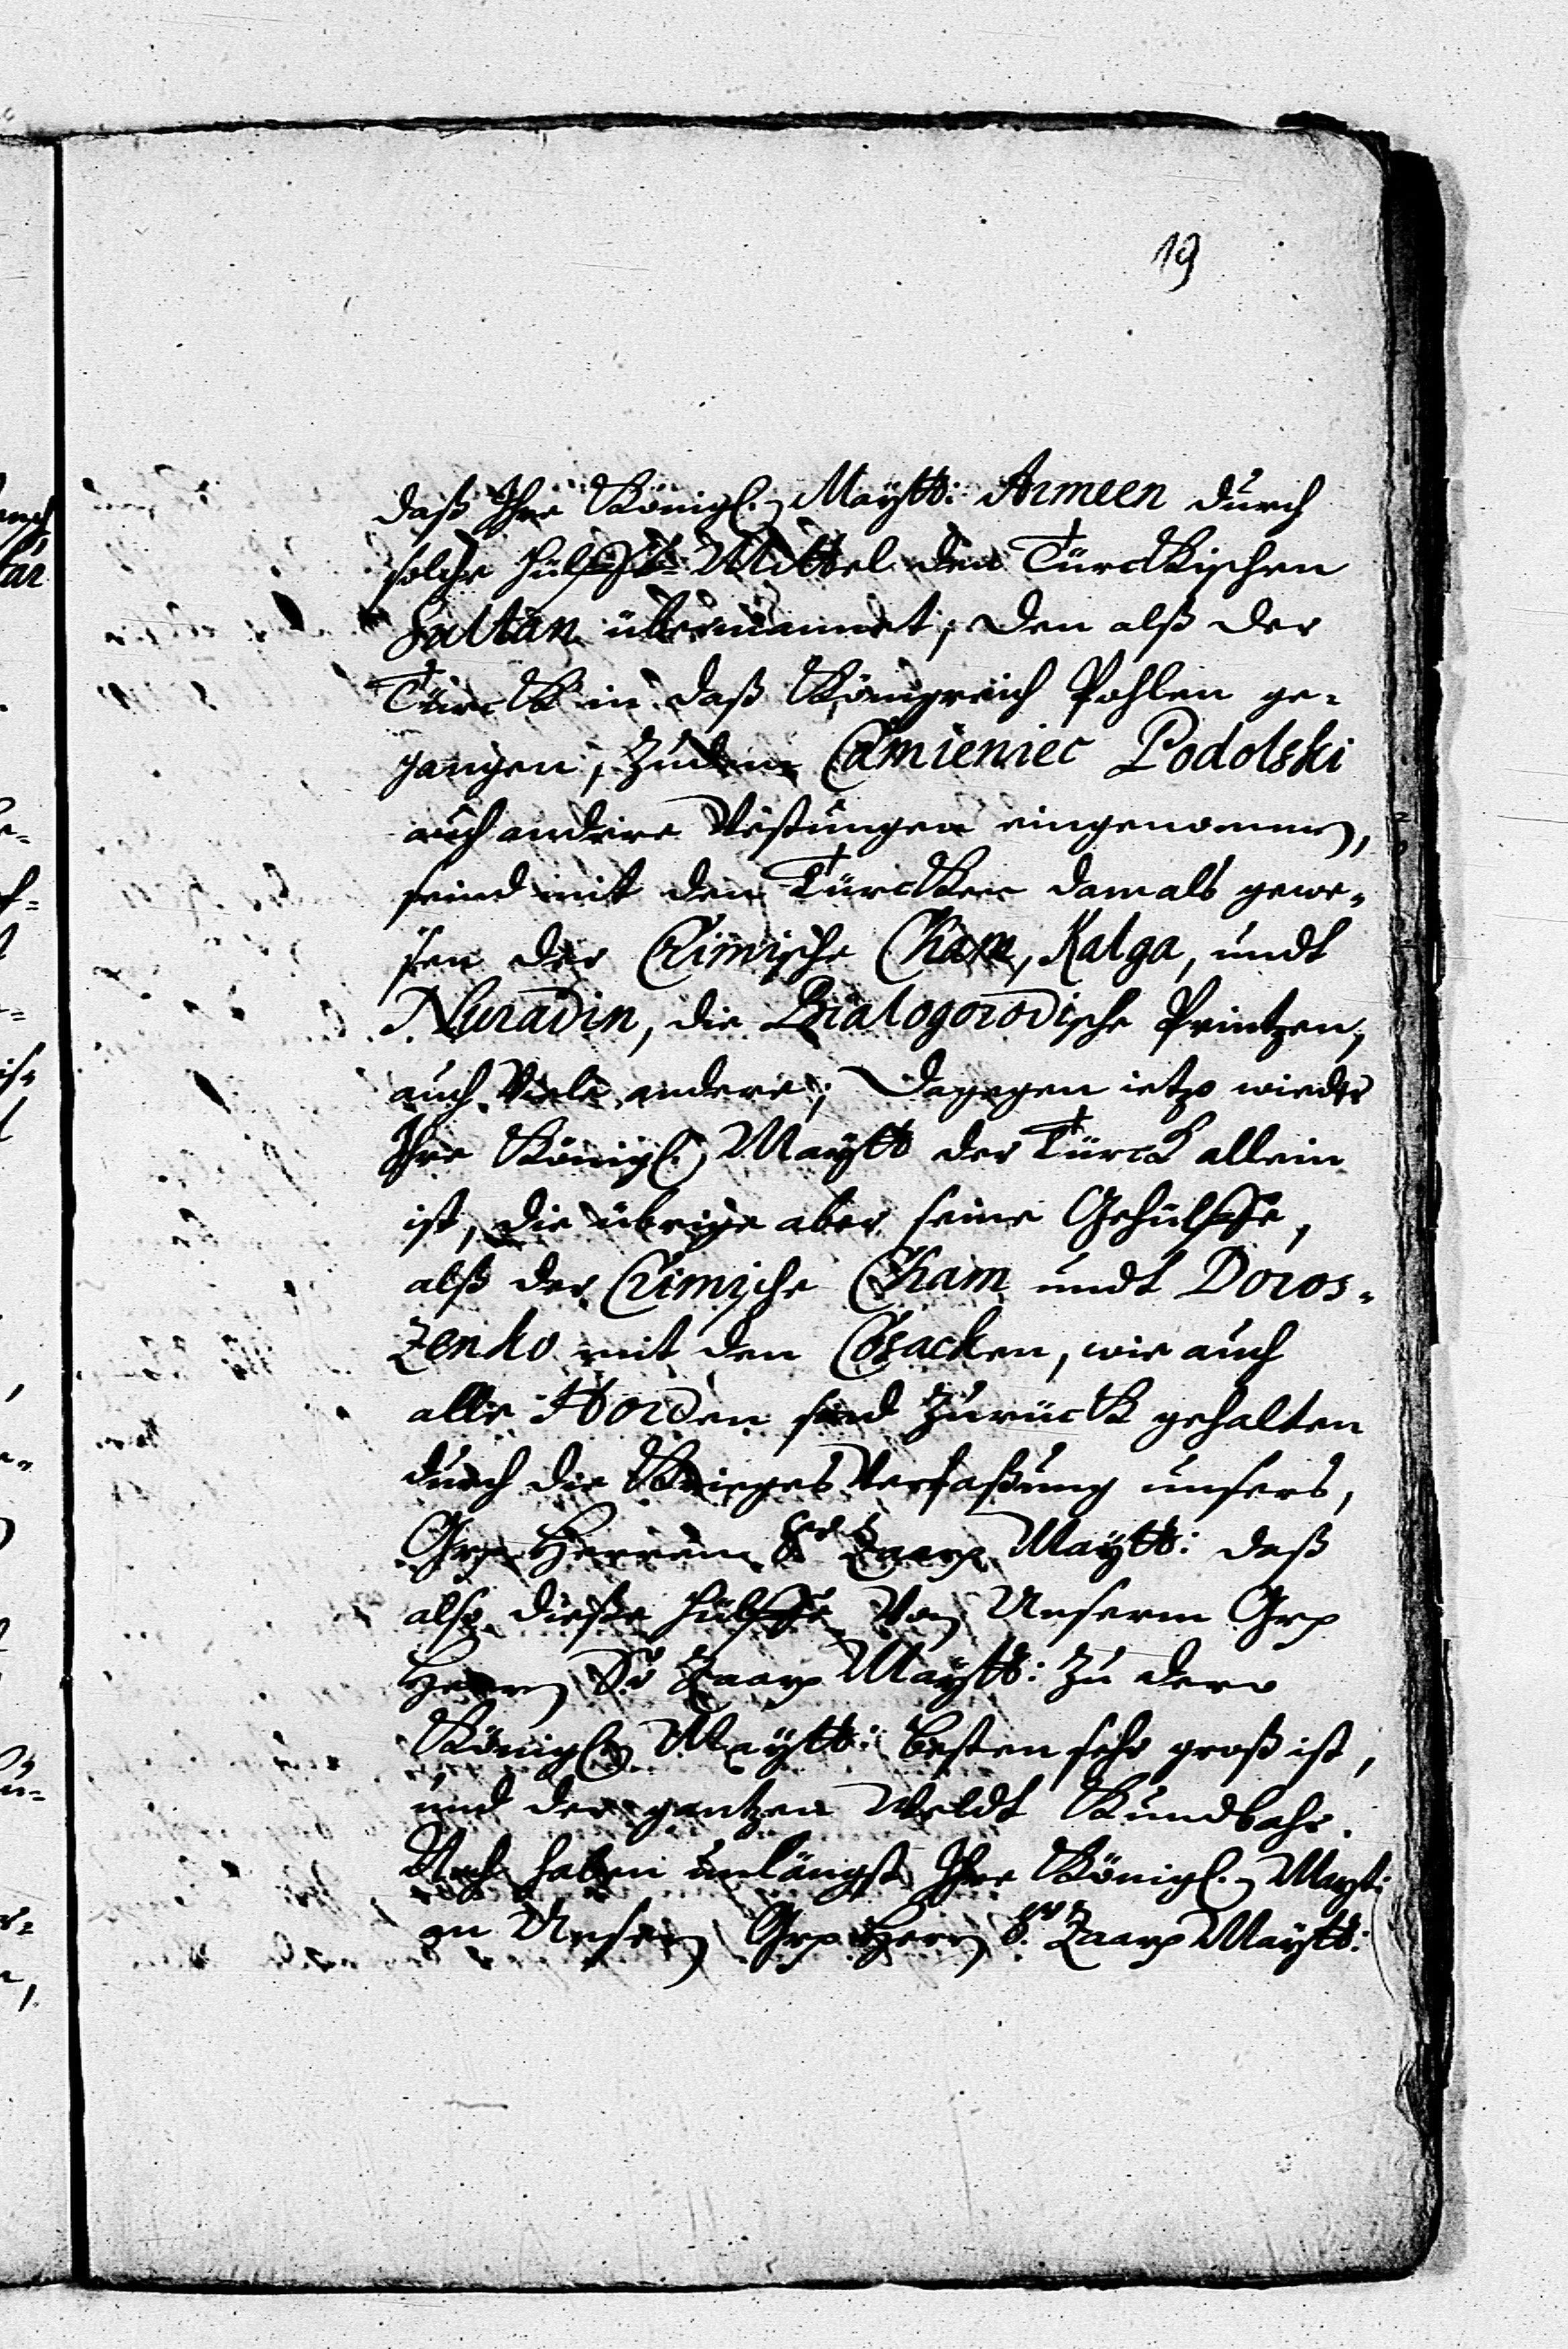 19
daß Ihre Königl. Maÿtt: Armeen durch
solche hülffs Mittel den Türckischen
Sultan übermannet, den alß der
Türck in daß Königreich Pohlen ge-
gangen, Zudem Camieniec Podolski
auch andere Vestungen eingenommen,
seind mit den Türcken damals gewe-
sen der Crimische Cham, Kalga, undt
Nuradin, die Bialogorodische Printzen,
auch Viele andere; Dagegen ietzo wieder
Ihre Königl. Maÿtt der Türck allein
ist, die übrige aber seine Gehülffe,
alß der Crimische Cham undt Doros-
zenko mit den Cosacken, wie auch
alle Horden sind Zurück gehalten
durch die Krieges Verfaßung unsers,
Grß Herren Sr Zaarß Maÿtt: daß
also dieße hülffe Von Unserm Grß
Herrn Sr Zaarß Maÿtt: Zu dero
Königl. Maÿtt: besten sehr groß ist,
und der gantzen Weldt Kundbahr.
Auch haben unlängst Ihre Königl. Maÿt:
an Unsern Grß Herrn Sr Zaarß Maÿtt: